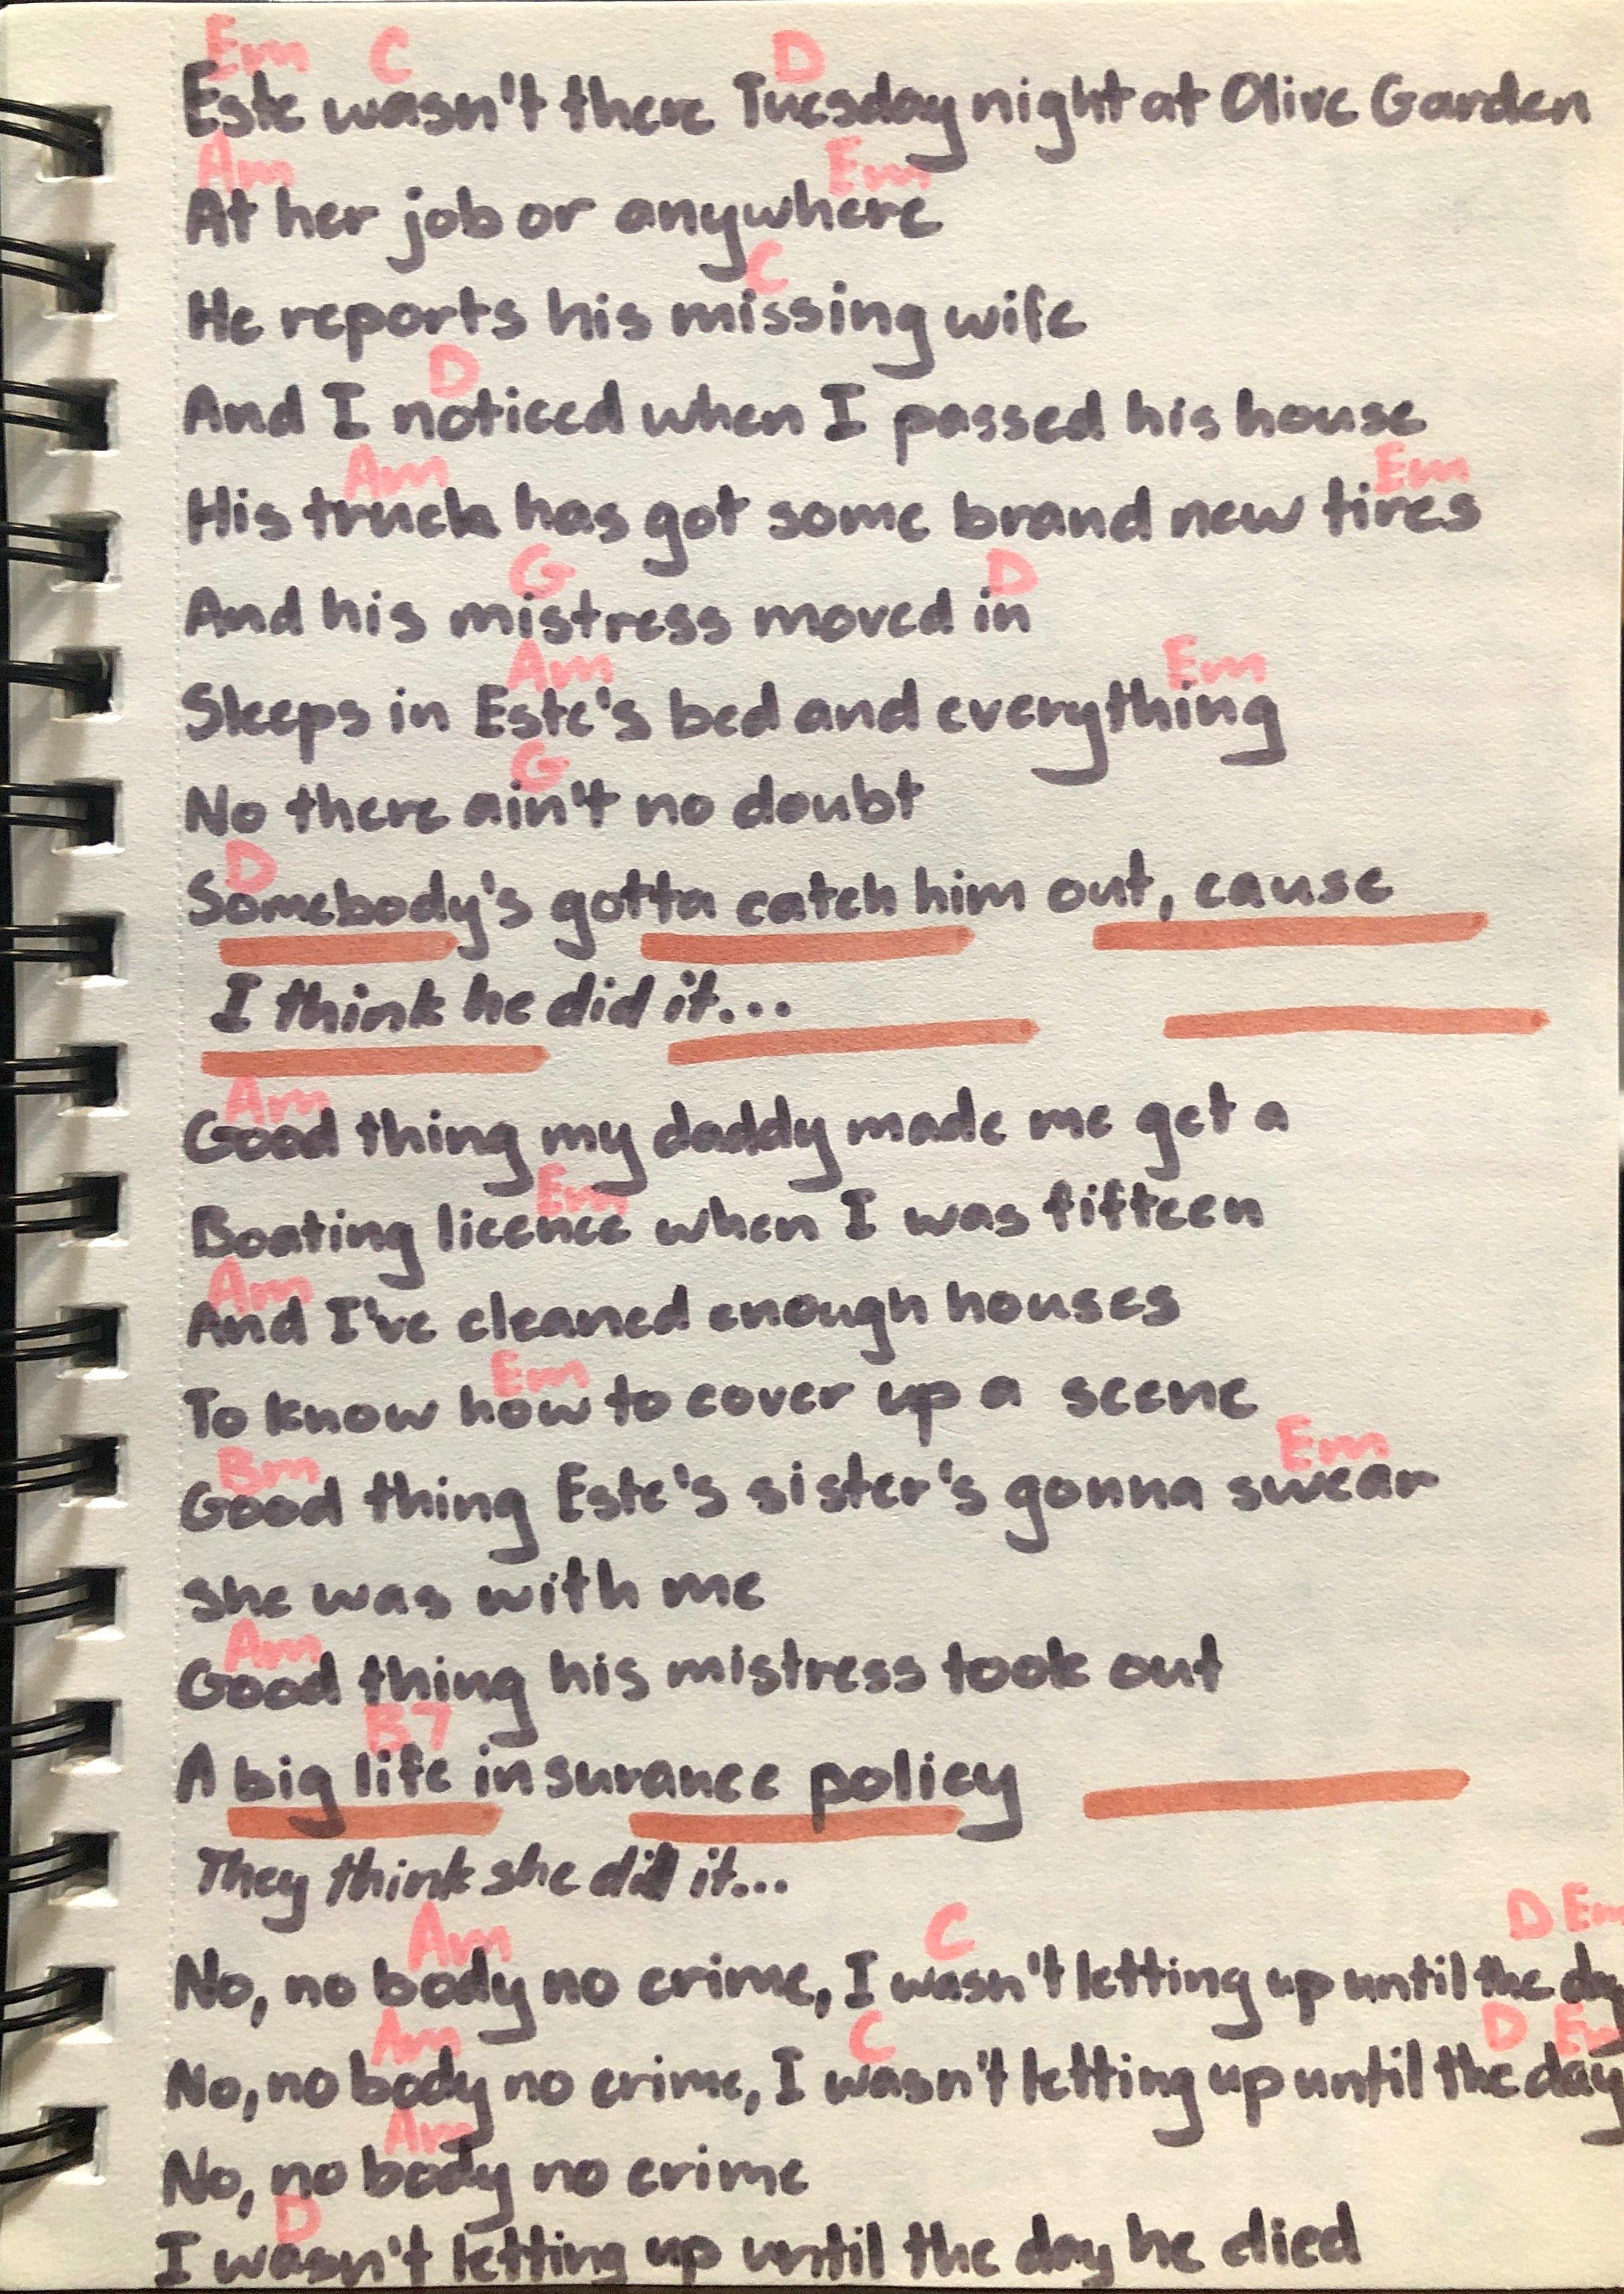 Em C D
Este wasn't there Tuesday night at Olive Garden
Am Em
At her job or anywhere
C
He reports his missing wife
D
And I noticed when I passed his house
Am Em
His truck has got some brand new tires
G D
And his mistress moved in
Am Em
Sleeps in Este's bed and everything
G
No there ain't no doubt
D
Somebody's gotta catch him out, cause
I think he did it...
Am
Good thing my daddy made me get a
Em
Boating licence when I was fifteen
Am
And I've cleaned enough houses
Em
To know how to cover up a scene
Bm Em
Good thing Este's sister's gonna swear
she was with me
Am
Good thing his mistress took out
B7
A big life insurance policy
They think she did it...
Am C D Em
No, no body no crime, I wasn't letting up until the day
Am C D Em
No, no body no crime, I wasn't letting up until the day
Am
No, no body no crime
D
I wasn't letting up until the day he died